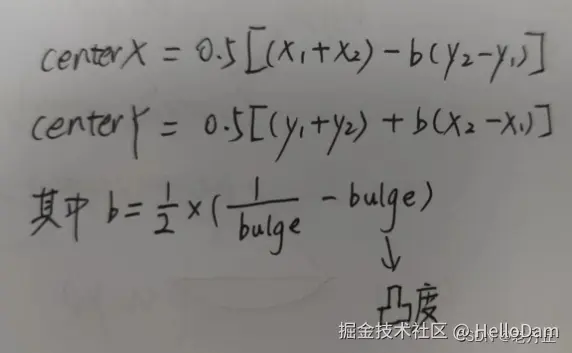 centerX = 0.5[(x₁+x₂) - b(y₂-y₁)]
centerY = 0.5[(y₁+y₂) + b(x₂-x₁)]
其中 b = 1/2 × (1/bulge - bulge)
↓
凸度
掘金技术社区 @ HelloDam